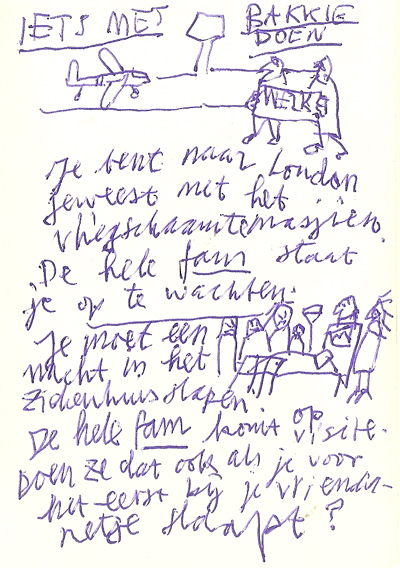 IETS MET
BAKKIE
DOEN
WELKO
Je bent naar London
geweest met het
vliegschaamtemasjien.
De hele fam staat
je op te wachten.
Je moet een
nacht in het
ziekenhuis slapen.
De hele fam komt op
visite.
Doen ze dat ook als je voor
het eerst bij je vriendin-
netje slaapt?